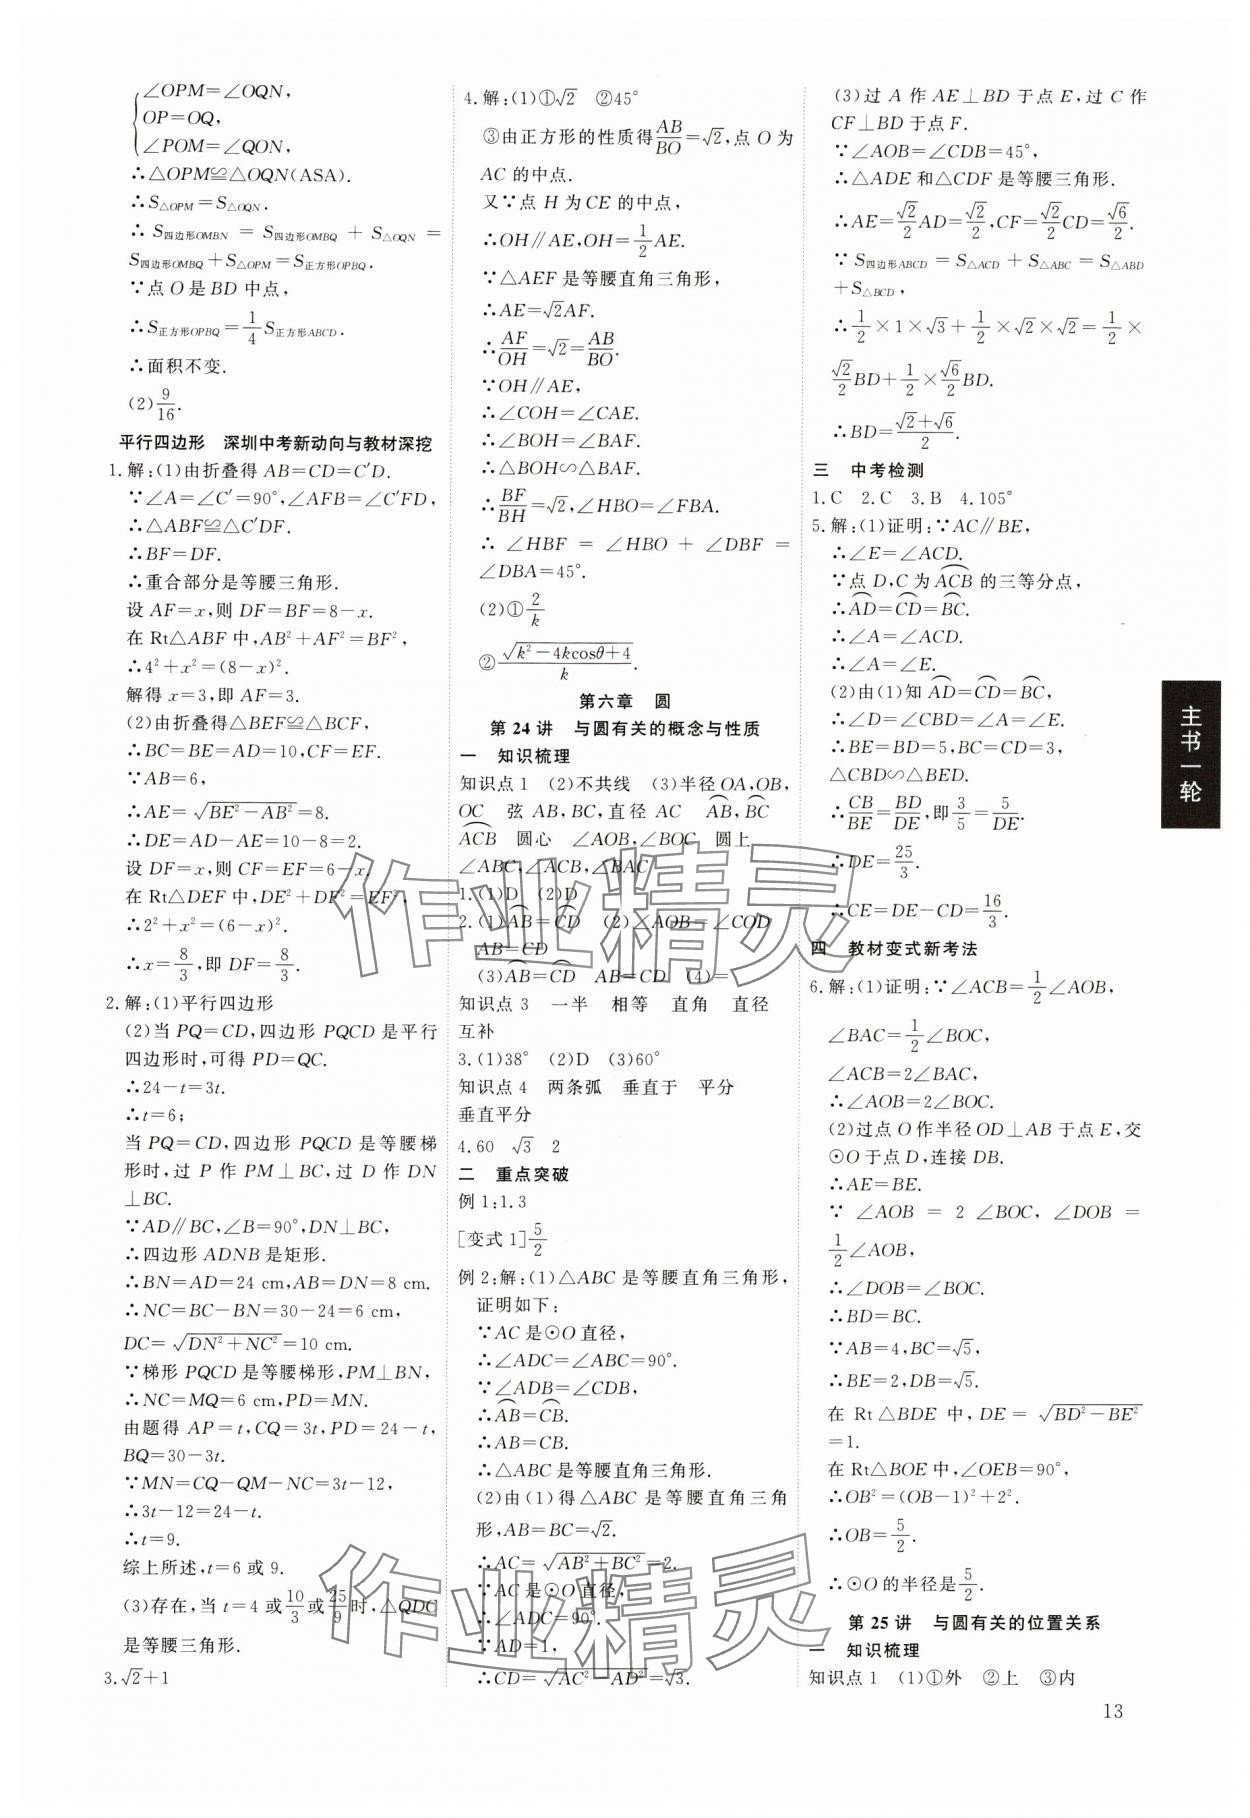 ∠OPM=∠OQN,
OP=OQ,
∠POM=∠QON,
∴△OPM≌△OQN(ASA).
∴S△OPM=S△OQN.
∴S四边形OMBN = S四边形OMBQ + S△OQN =
S四边形OMBQ+S△OPM=S正方形OPBQ.
∵点O是BD中点,
∴S正方形OPBQ=1/4S正方形ABCD.
∴面积不变.
(2)9/16.
平行四边形 深圳中考新动向与教材深挖
1.解:(1)由折叠得AB=CD=C′D.
∵∠A=∠C′=90°,∠AFB=∠C′FD,
∴△ABF≌△C′DF.
∴BF=DF.
∴重合部分是等腰三角形.
设AF=x,则DF=BF=8-x.
在Rt△ABF中,AB²+AF²=BF²,
∴4²+x²=(8-x)².
解得x=3,即AF=3.
(2)由折叠得△BEF≌△BCF,
∴BC=BE=AD=10,CF=EF.
∵AB=6,
∴AE=√(BE²-AB²)=8.
∴DE=AD-AE=10-8=2.
设DF=x,则CF=EF=6-x.
在Rt△DEF中,DE²+DF²=EF²,
∴2²+x²=(6-x)².
∴x=8/3,即DF=8/3.
2.解:(1)平行四边形
(2)当PQ=CD,四边形PQCD是平行
四边形时,可得PD=QC.
∴24-t=3t.
∴t=6;
当PQ=CD,四边形PQCD是等腰梯
形时,过P作PM⊥BC,过D作DN
⊥BC.
∵AD∥BC,∠B=90°,DN⊥BC,
∴四边形ADNB是矩形.
∴BN=AD=24 cm,AB=DN=8 cm.
∴NC=BC-BN=30-24=6 cm,
DC=√(DN²+NC²)=10 cm.
∵梯形PQCD是等腰梯形,PM⊥BN,
∴NC=MQ=6 cm,PD=MN.
由题得AP=t,CQ=3t,PD=24-t,
BQ=30-3t.
∵MN=CQ-QM-NC=3t-12,
∴3t-12=24-t.
∴t=9.
综上所述,t=6或9.
(3)存在,当t=4或10/3或25/9时,△QDC
是等腰三角形.
3.√2+1
4.解:(1)①√2 ②45°
③由正方形的性质得AB/BO=√2,点O为
AC的中点.
又∵点H为CE的中点,
∴OH∥AE,OH=1/2AE.
∵△AEF是等腰直角三角形,
∴AE=√2AF.
∴AF/OH=√2=AB/BO.
∵OH∥AE,
∴∠COH=∠CAE.
∴∠BOH=∠BAF.
∴△BOH∽△BAF.
∴BF/BH=√2,∠HBO=∠FBA.
∴∠HBF = ∠HBO + ∠DBF =
∠DBA=45°.
(2)①2/k
②√(k²-4kcosθ+4)/k.
第六章 圆
第24讲 与圆有关的概念与性质
一 知识梳理
知识点1 (2)不共线 (3)半径OA,OB,
OC 弦AB,BC,直径AC A͡B,B͡C
A͡CB 圆心 ∠AOB,∠BOC 圆上
∠ABC,∠ACB,∠BAC
1.(1)D (2)D
2.(1)A͡B=C͡D (2)∠AOB=∠COD
AB=CD
(3)A͡B=C͡D AB=CD (4)=
知识点3 一半 相等 直角 直径
互补
3.(1)38° (2)D (3)60°
知识点4 两条弧 垂直于 平分
垂直平分
4.60 √3 2
二 重点突破
例1:1.3
[变式1]5/2
例2:解:(1)△ABC是等腰直角三角形,
证明如下:
∵AC是⊙O直径,
∴∠ADC=∠ABC=90°.
∵∠ADB=∠CDB,
∴A͡B=C͡B.
∴AB=CB.
∴△ABC是等腰直角三角形.
(2)由(1)得△ABC是等腰直角三角
形,AB=BC=√2.
∴AC=√(AB²+BC²)=2.
∵AC是⊙O直径,
∴∠ADC=90°.
∵AD=1,
∴CD=√(AC²-AD²)=√3.
(3)过A作AE⊥BD于点E,过C作
CF⊥BD于点F.
∵∠AOB=∠CDB=45°,
∴△ADE和△CDF是等腰三角形.
∴AE=√2/2AD=√2/2,CF=√2/2CD=√6/2.
∵S四边形ABCD = S△ACD + S△ABC = S△ABD
+S△BCD,
∴1/2×1×√3+1/2×√2×√2=1/2×
√2/2BD+1/2×√6/2BD.
∴BD=(√2+√6)/2.
三 中考检测
1.C 2.C 3.B 4.105°
5.解:(1)证明:∵AC∥BE,
∴∠E=∠ACD.
∵点D,C为A͡CB的三等分点,
∴A͡D=C͡D=B͡C.
∴∠A=∠ACD.
∴∠A=∠E.
(2)由(1)知A͡D=C͡D=B͡C,
∴∠D=∠CBD=∠A=∠E.
∴BE=BD=5,BC=CD=3,
△CBD∽△BED.
∴CB/BE=BD/DE,即3/5=5/DE.
∴DE=25/3.
∴CE=DE-CD=16/3.
四 教材变式新考法
6.解:(1)证明:∵∠ACB=1/2∠AOB,
∠BAC=1/2∠BOC,
∠ACB=2∠BAC.
∴∠AOB=2∠BOC.
(2)过点O作半径OD⊥AB于点E,交
⊙O于点D,连接DB.
∴AE=BE.
∵ ∠AOB = 2 ∠BOC, ∠DOB =
1/2∠AOB,
∴∠DOB=∠BOC.
∴BD=BC.
∵AB=4,BC=√5,
∴BE=2,DB=√5.
在Rt△BDE中,DE=√(BD²-BE²)
=1.
在Rt△BOE中,∠OEB=90°,
∴OB²=(OB-1)²+2².
∴OB=5/2.
∴⊙O的半径是5/2.
第25讲 与圆有关的位置关系
一 知识梳理
知识点1 (1)①外 ②上 ③内
主书一轮
13
作业精灵
作业精灵